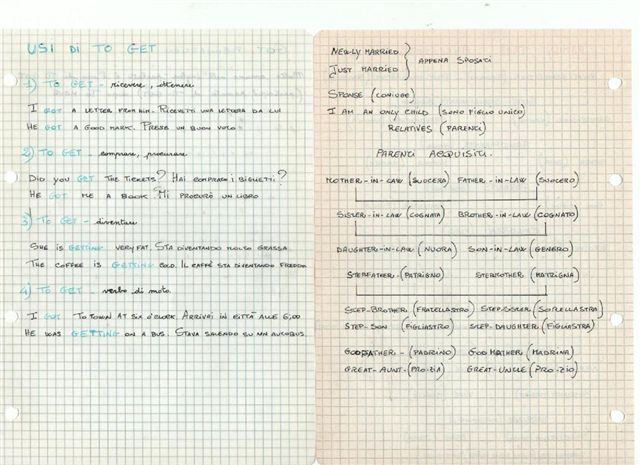 USI DI TO GET
1) TO GET - ricevere, ottenere
I GOT A LETTER FROM HIM. RICEVETTI UNA LETTERA DA LUI
HE GOT A GOOD MARK. PRESE UN BUON VOTO
2) TO GET - comprare, procurare
DID YOU GET THE TICKETS? HAI COMPRATO I BIGLIETTI?
HE GOT ME A BOOK. MI PROCURÒ UN LIBRO
3) TO GET - diventare
SHE IS GETTING VERY FAT. STA DIVENTANDO MOLTO GRASSA
THE COFFEE IS GETTING COLD. IL CAFFÈ STA DIVENTANDO FREDDO
4) TO GET - verbo di moto.
I GOT TO TOWN AT SIX O'CLOCK. ARRIVAI IN CITTÀ ALLE 6,00
HE WAS GETTING ON A BUS. STAVA SALENDO SU UN AUTOBUS.
NEWLY MARRIED
JUST MARRIED } APPENA SPOSATI
SPONSE (CONIUGE)
I AM AN ONLY CHILD (SONO FIGLIO UNICO)
RELATIVES (PARENTI)
PARENTI ACQUISITI.
MOTHER-IN-LAW (SUOCERA) FATHER-IN-LAW (SUOCERO)
SISTER-IN-LAW (COGNATA) BROTHER-IN-LAW (COGNATO)
DAUGHTER-IN-LAW (NUORA) SON-IN-LAW (GENERO)
STEPFATHER-(PATRIGNO) STEPMOTHER (MATRIGNA)
STEP-BROTHER (FRATELLASTRO) STEP-SISTER (SORELLASTRA)
STEP-SON (FIGLIASTRO) STEP-DAUGHTER (FIGLIASTRA)
GODFATHER-(PADRINO) GODMOTHER (MADRINA)
GREAT-AUNT-(PRO-ZIA) GREAT-UNCLE (PRO-ZIO)